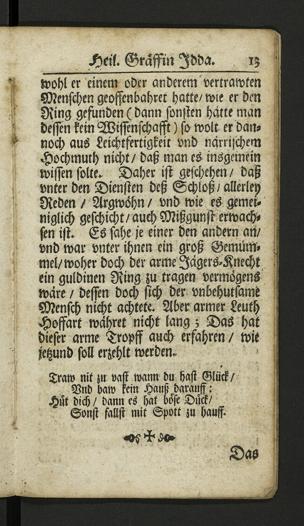 Heil. Gräffin Idda. 13
wohl er einem oder anderem vertrawten
Menschen geoffenbahret hatte/ wie er den
Ring gefunden (dann sonsten hätte man
dessen kein Wissenschafft) so wolt er dan-
noch aus Leichtfertigkeit vnd närrischem
Hochmuth nicht/ daß man es insgemein
wissen solte. Daher ist geschehen/ daß
vnter den Diensten deß Schloß/ allerley
Reden/ Argwöhn/ vnd wie es gemei-
niglich geschicht/ auch Mißgunst erwach-
sen ist. Es sahe je einer den andern an/
vnd war vnter ihnen ein groß Gemüm-
mel/ woher doch der arme Jägers-Knecht
ein guldinen Ring zu tragen vermögens
wäre/ dessen doch sich der vnbehutsame
Mensch nicht achtete. Aber armer Leuth
Hoffart währet nicht lang; Das hat
dieser arme Tropff auch erfahren/ wie
jetzund soll erzehlt werden.
Traw nit zu vast wann du hast Glück/
Vnd baw kein Hauß darauff;
Hüt dich/ dann es hat böse Dück/
Sonst fallst mit Spott zu hauff.
Das